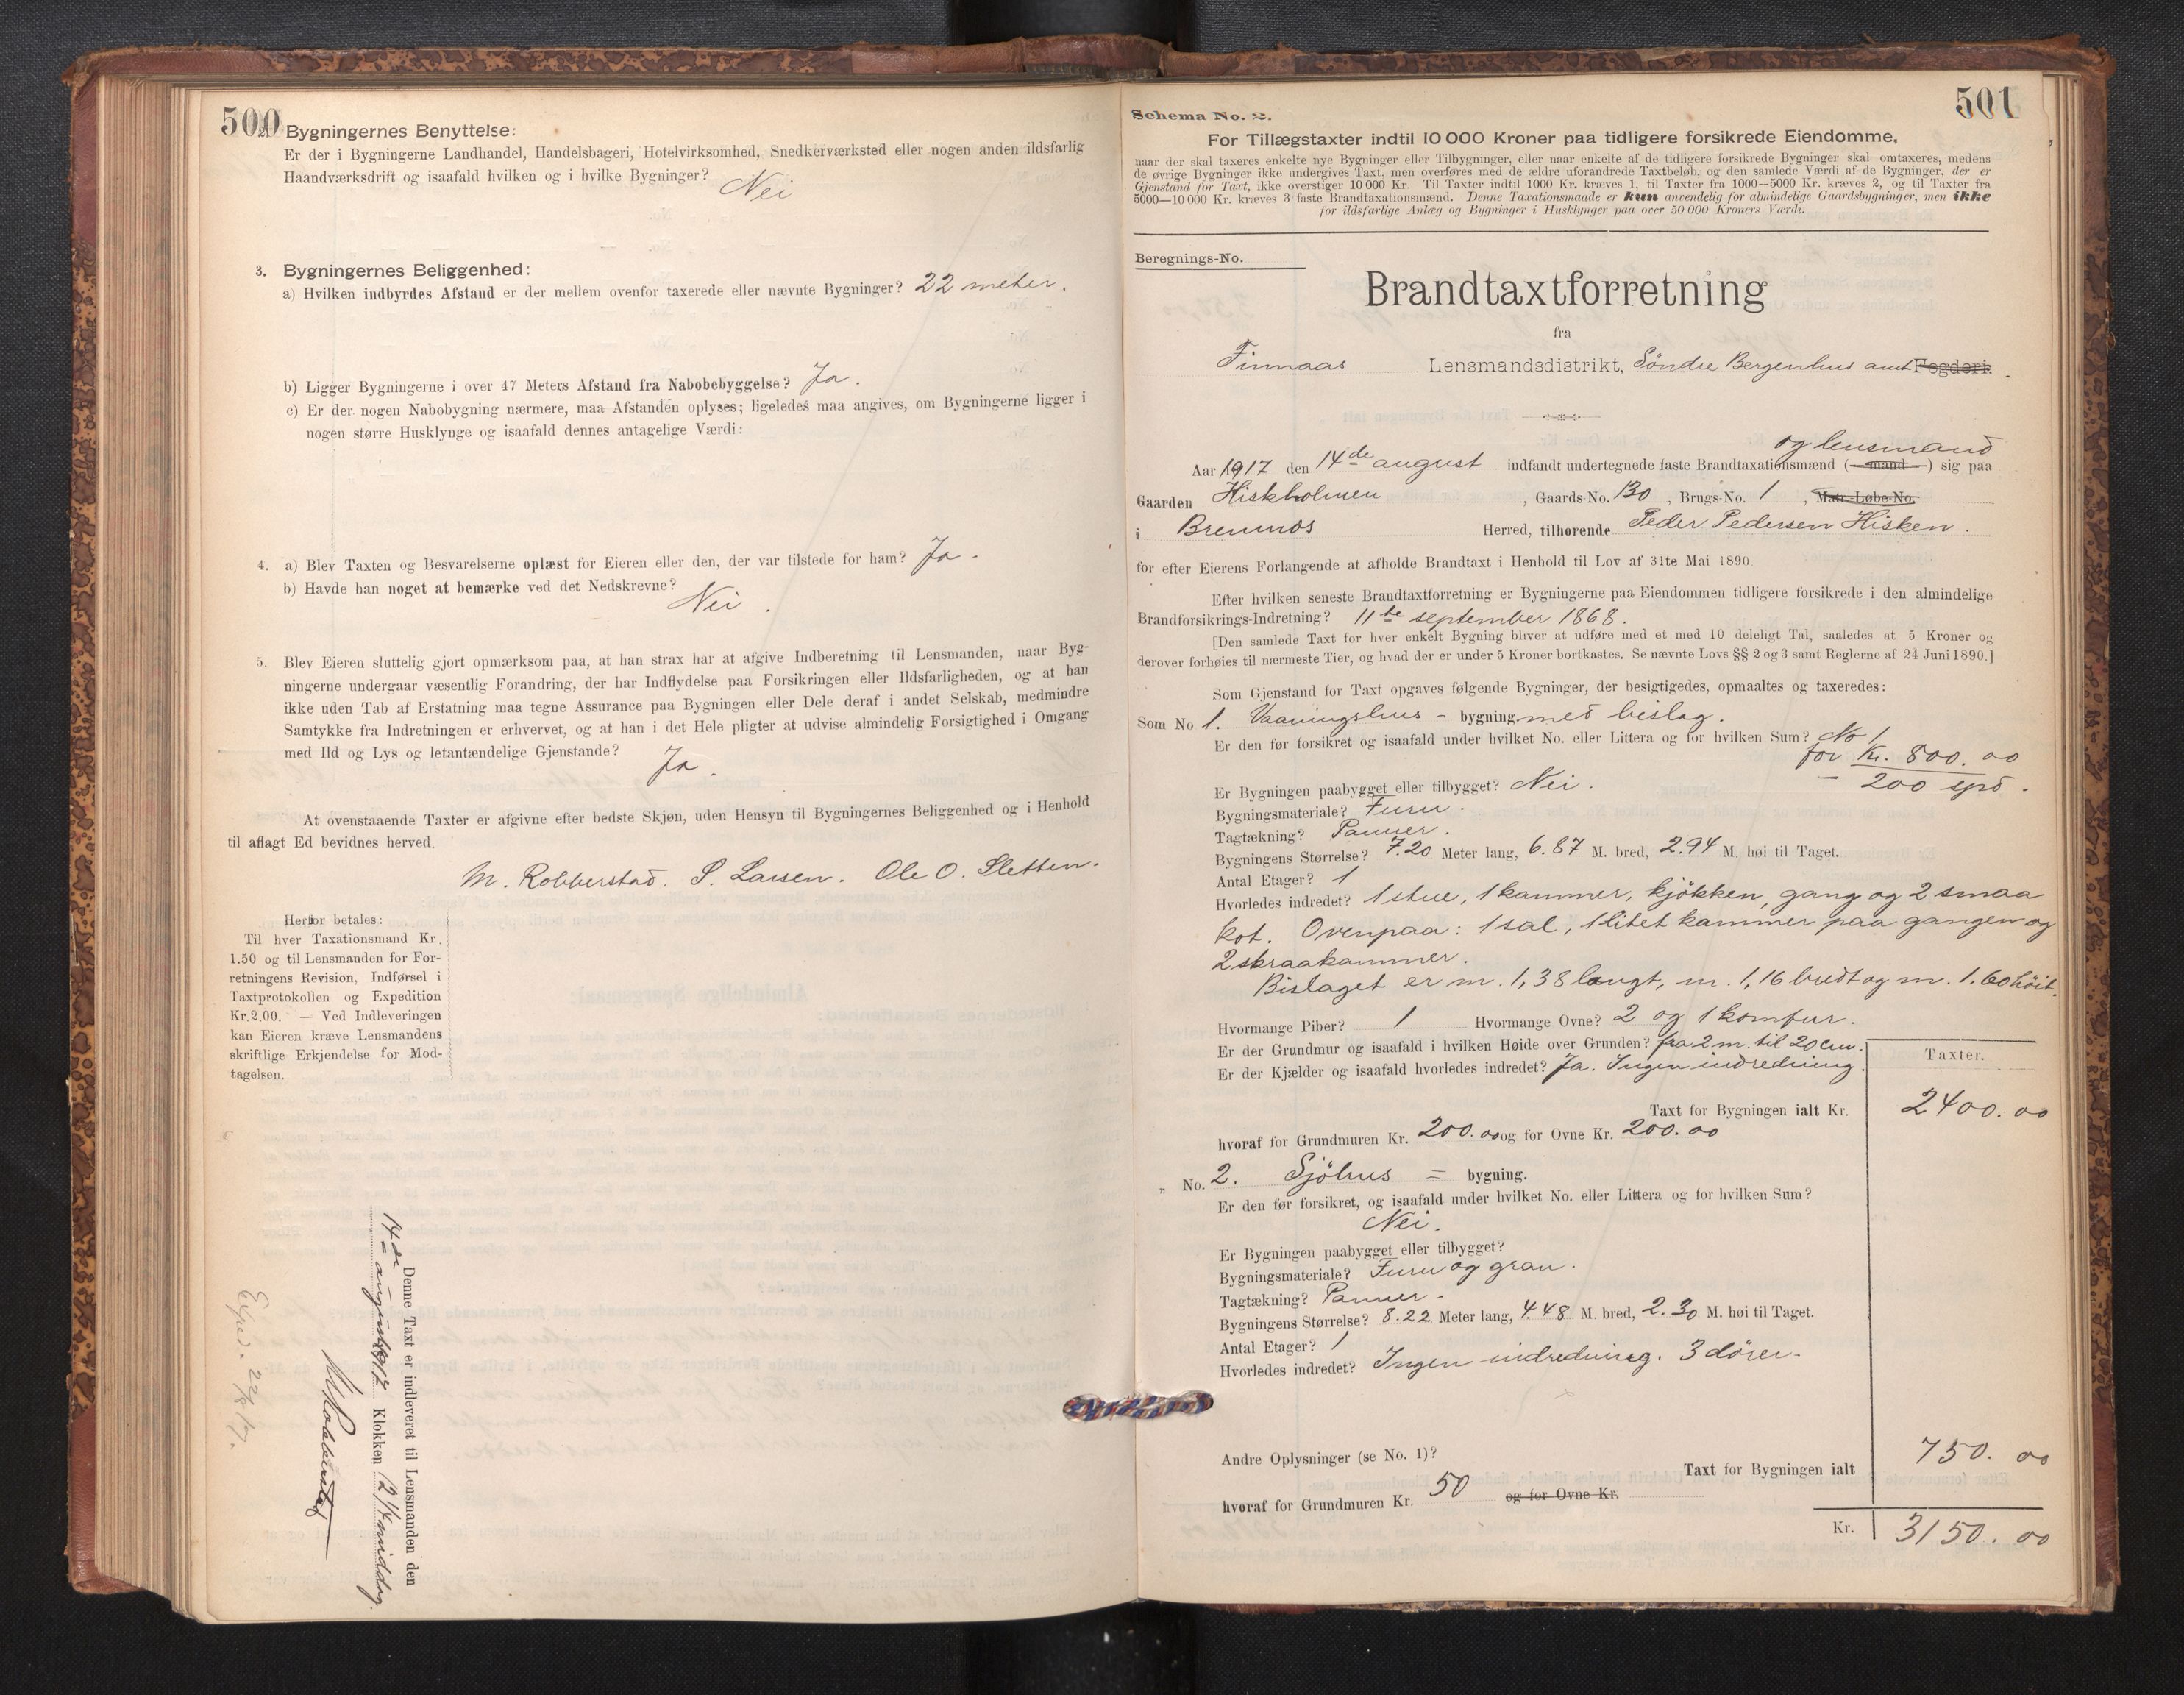 500
2. Bygningernes Benyttelse:
Er der i Bygningerne Landhandel, Handelsbageri, Hotelvirksomhed, Snedkerværksted eller nogen anden ildsfarlig
Haandværksdrift og isaafald hvilken og i hvilke Bygninger? Nei
3. Bygningernes Beliggenhed:
a) Hvilken indbyrdes Afstand er der mellem ovenfor taxerede eller nævnte Bygninger? 22 meter.
b) Ligger Bygningerne i over 47 Meters Afstand fra Nabobebyggelse? Ja.
c) Er der nogen Nabobygning nærmere, maa Afstanden oplyses; ligeledes maa angives, om Bygningerne ligger i
nogen større Husklynge og isaafald dennes antagelige Værdi:
4. a) Blev Taxten og Besvarelserne oplæst for Eieren eller den, der var tilstede for ham? Ja.
b) Havde han noget at bemærke ved det Nedskrevne?
Nei.
5. Blev Eieren sluttelig gjort opmærksom paa, at han strax har at afgive Indberetning til Lensmanden, naar Byg-
ningerne undergaar væsentlig Forandring, der har Indflydelse paa Forsikringen eller Ildsfarligheden, og at han
ikke uden Tab af Erstatning maa tegne Assurance paa Bygningen eller Dele deraf i andet Selskab, medmindre
Samtykke fra Indretningen er erhvervet, og at han i det Hele pligter at udvise almindelig Forsigtighed i Omgang
med Ild og Lys og letantændelige Gjenstande?
Ja.
At ovenstaaende Taxter er afgivne efter bedste Skjøn, uden Hensyn til Bygningernes Beliggenhed og i Henhold
til aflagt Ed bevidnes herved.
M. Robberstad. S. Larsen. Ole O. Sletten.
Herfor betales:
Til hver Taxationsmand Kr.
1.50 og til Lensmanden for For-
retningens Revision, Indførsel i
Taxtprotokollen og Expedition
Kr. 2.00. — Ved Indleveringen
kan Eieren kræve Lensmandens
skriftlige Erkjendelse for Mod-
tagelsen.
Denne Taxt er indleveret til Lensmanden den
14de august 1917 Klokken 2 1/4 middag.
M Robberstad
Exped. 22/8 17.
501
Schema No. 2.
For Tillægstaxter indtil 10 000 Kroner paa tidligere forsikrede Eiendomme,
naar der skal taxeres enkelte nye Bygninger eller Tilbygninger, eller naar enkelte af de tidligere forsikrede Bygninger skal omtaxeres, medens
de øvrige Bygninger ikke undergives Taxt, men overføres med de ældre uforandrede Taxtbeløb, og den samlede Værdi af de Bygninger, der er
Gjenstand for Taxt, ikke overstiger 10 000 Kr. Til Taxter indtil 1000 Kr. kræves 1, til Taxter fra 1000—5000 Kr. kræves 2, og til Taxter fra
5000—10 000 Kr. kræves 3 faste Brandtaxationsmænd. Denne Taxationsmaade er kun anvendelig for almindelige Gaardsbygninger, men ikke
for ildsfarlige Anlæg og Bygninger i Husklynger paa over 50 000 Kroners Værdi.
Beregnings-No.
Brandtaxtforretning
fra
Finnaas Lensmandsdistrikt, Söndre Bergenhus amt Fogderi.
og lensmand
Aar 1917 den 14de august indfandt undertegnede faste Brandtaxationsmænd (mand) sig paa
Gaarden Hiskholmen, Gaards-No. 130, Brugs-No. 1, Matr.-Løbe-No.
i Bremnes Herred, tilhørende Peder Pedersen Hisken.
for efter Eierens Forlangende at afholde Brandtaxt i Henhold til Lov af 31te Mai 1890
Efter hvilken seneste Brandtaxtforretning er Bygningerne paa Eiendommen tidligere forsikrede i den almindelige
Brandforsikrings-Indretning? 11te september 1868.
[Den samlede Taxt for hver enkelt Bygning bliver at udføre med et med 10 deleligt Tal, saaledes at 5 Kroner og
derover forhøies til nærmeste Tier, og hvad der er under 5 Kroner bortkastes. Se nævnte Lovs §§ 2 og 3 samt Reglerne af 24 Juni 1890.]
Som Gjenstand for Taxt opgaves følgende Bygninger, der besigtigedes, opmaaltes og taxeredes:
Som No 1. Vaaningshus - bygning med bislag.
Er den før forsikret og isaafald under hvilket No. eller Littera og for hvilken Sum? No 1
for Kr. 800.00
200 spd.
Er Bygningen paabygget eller tilbygget? Nei.
Bygningsmateriale? Furu.
Tagtækning? Panner.
Bygningens Størrelse? 7.20 Meter lang, 6.87 M. bred, 2.94 M. høi til Taget.
Antal Etager? 1
Hvorledes indredet? 1 stue, 1 kammer, kjökken, gang og 2 smaa
kot. Ovenpaa: 1 sal, 1 litet kammer paa gangen og
2 skraakammer.
Bislaget er m. 1,38 langt, m. 1,16 bredt og m. 1.60 höit.
Hvormange Piber? 1 Hvormange Ovne? 2 og 1 komfur.
Er der Grundmur og isaafald i hvilken Høide over Grunden? fra 2 m. til 20 cm.
Er der Kjælder og isaafald hvorledes indredet? Ja. Ingen indredning.
Taxter.
Taxt for Bygningen ialt Kr. 2400.00
hvoraf for Grundmuren Kr. 200.00 og for Ovne Kr. 200.00
„ No. 2. Sjöhus = bygning.
Er den før forsikret, og isaafald under hvilket No. eller Littera og for hvilken Sum?
Nei.
Er Bygningen paabygget eller tilbygget?
Bygningsmateriale? Furu og gran.
Tagtækning? Panner.
Bygningens Størrelse? 8.22 Meter lang, 4.48 M. bred, 2.30 M. høi til Taget.
Antal Etager? 1
Hvorledes indredet? Ingen indredning. 3 dörer.
Andre Oplysninger (se No. 1)?
Taxt for Bygningen ialt 750.00
hvoraf for Grundmuren Kr. 50 og for Ovne Kr.
Kr. 3150.00